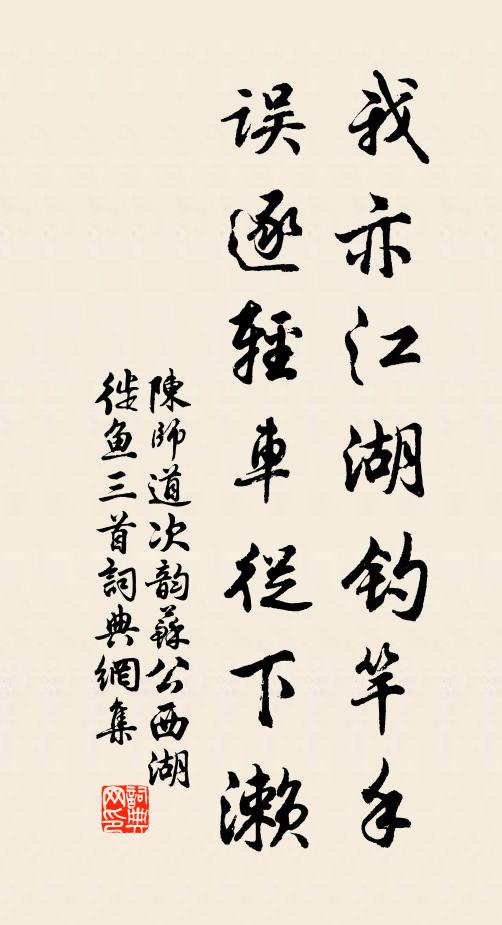 我亦江湖钓竿手
误逐輕車從下濑
陳師道次韵蘇公西湖
徙鱼三首詞典網集
詞典
网印